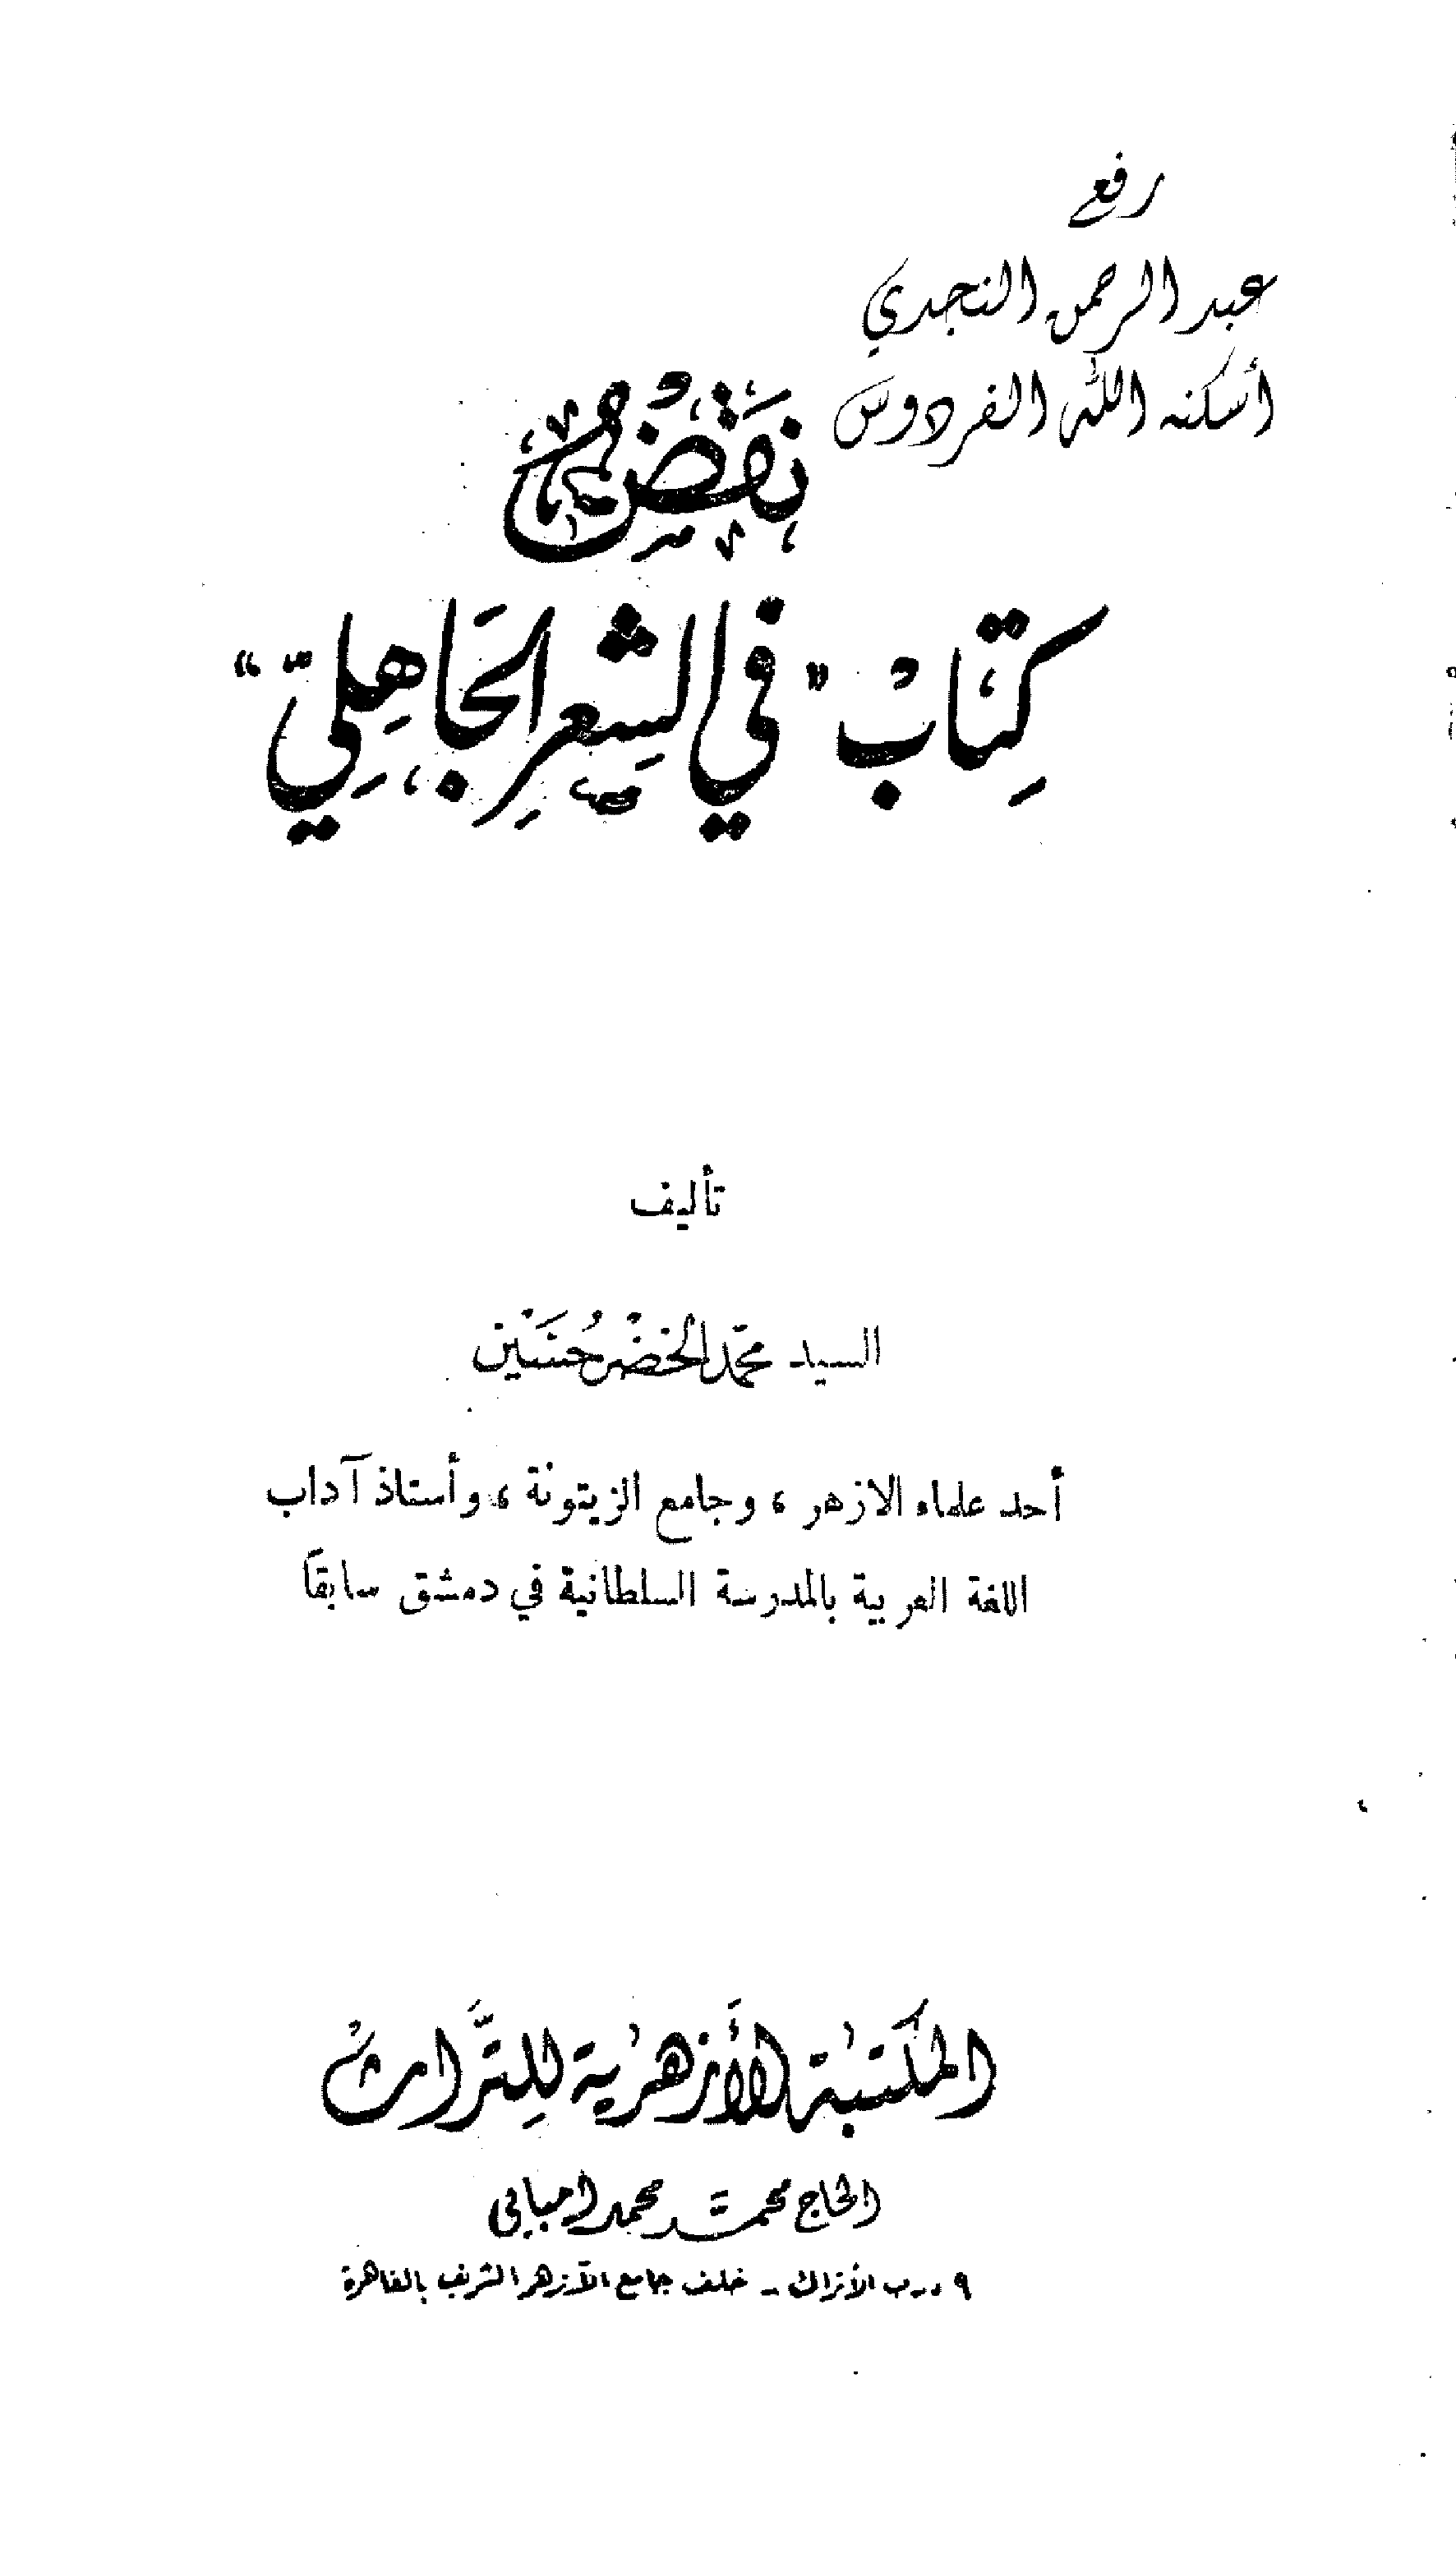 رفع
عبد الرحمن النجدي
أسكنه الله الفردوس
نَقْضُ
كِتَابْ " فِي الشِعرِ الجَاهِلِيّ "
تأليف
السيد محمّد الخضْر حُسَيْن
أحد علماء الازهر ، وجامع الزيتونة ، وأستاذ آداب
اللغة العربية بالمدرسة السلطانية في دمشق سابقاً
المكتبة الأزهرية للتراث
الحاج محمد محمد امبابي
٩ درب الأتراك - خلف جامع الأزهر الشريف بالقاهرة